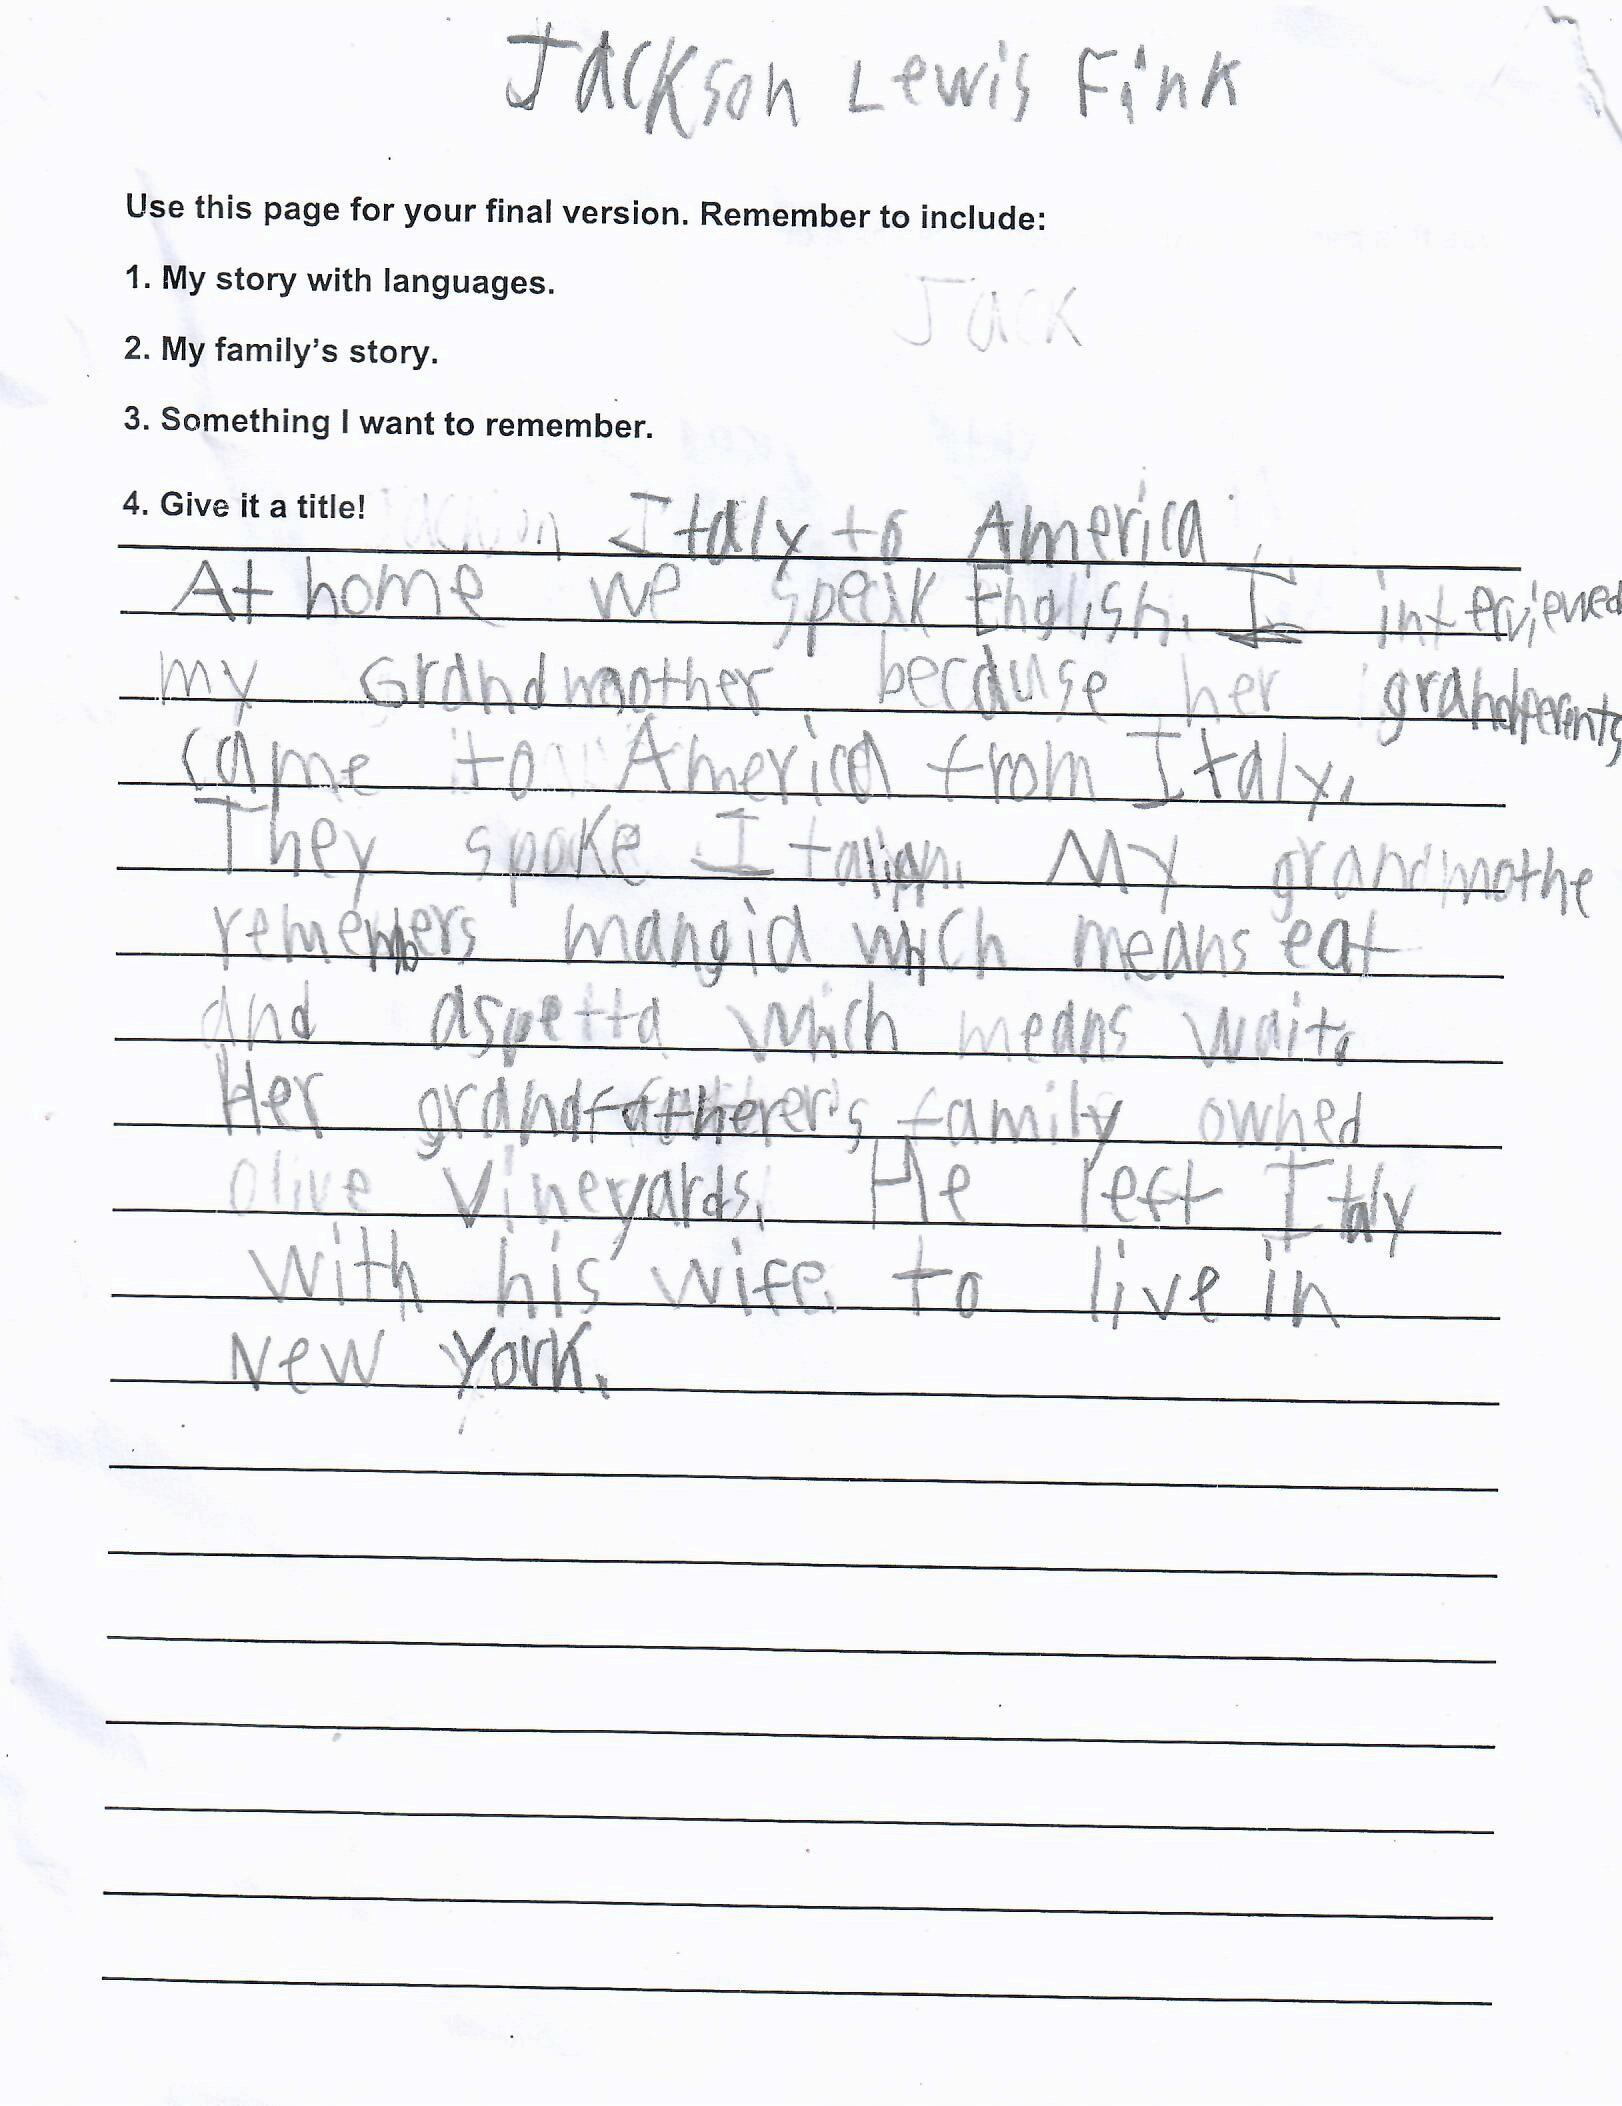 Jackson Lewis Fink
Use this page for your final version. Remember to include:
1. My story with languages.
Jack
2. My family's story.
3. Something I want to remember.
4. Give it a title!
Italy to America
At home we speak English. I interviewed
my Grandmother because her grandparents
came to America from Italy.
They spoke Italian. My grandmothe
remembers mangia which means eat
and aspetta which means wait.
Her grandfatherer's family owned
olive Vineyards. He left Italy
with his wife to live in
New York.